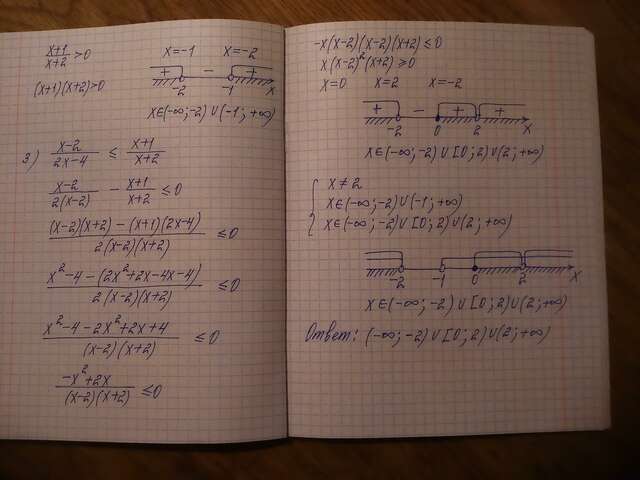 x+1/x+2 > 0
x=-1 x=-2
(x+1)(x+2)>0
+ - +
-2 -1 x
x∈(-∞;-2)∪(-1;+∞)
3) x-2/2x-4 ≤ x+1/x+2
x-2/2(x-2) - x+1/x+2 ≤0
(x-2)(x+2)-(x+1)(2x-4)/2(x-2)(x+2) ≤0
x²-4-(2x²+2x-4x-4)/2(x-2)(x+2) ≤0
x²-4-2x²+2x+4/(x-2)(x+2) ≤0
-x²+2x/(x-2)(x+2) ≤0
-x(x-2)(x-2)(x+2)≤0
x(x-2)²(x+2)≥0
x=0 x=2 x=-2
+ - + +
-2 0 2 x
x∈(-∞;-2)∪[0;2)∪(2;+∞)
x≠2
x∈(-∞;-2)∪(-1;+∞)
x∈(-∞;-2)∪[0;2)∪(2;+∞)
-2 -1 0 2 x
x∈(-∞;-2)∪[0;2)∪(2;+∞)
Ответ: (-∞;-2)∪[0;2)∪(2;+∞)